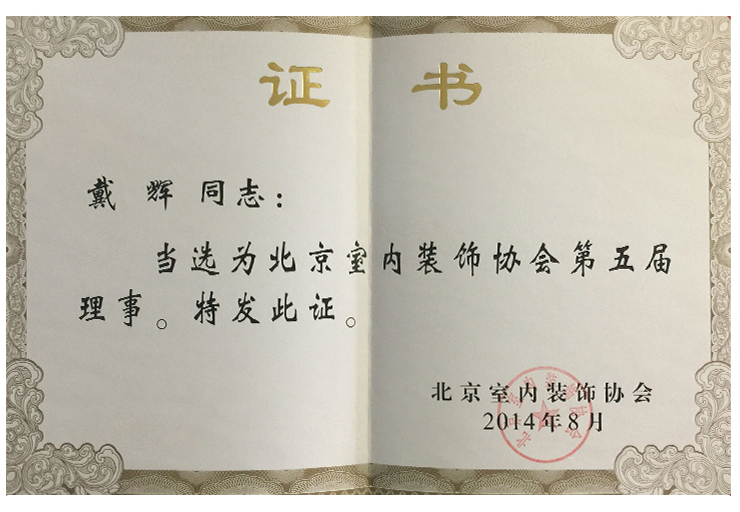 证 书
戴 辉 同志：
当选为北京室内装饰协会第五届
理事。特发此证。
北京室内装饰协会
2014年8月
北京室内装饰协会